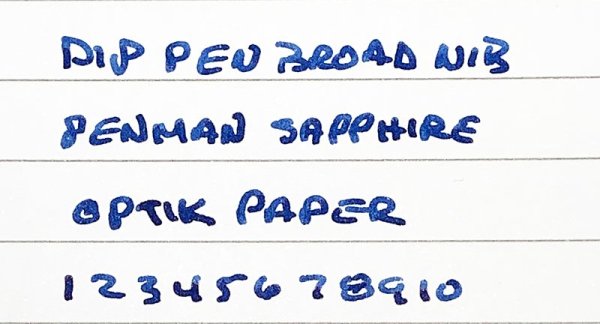 DIP PEN BROAD NIB
PENMAN SAPPHIRE
OPTIK PAPER
12345678910